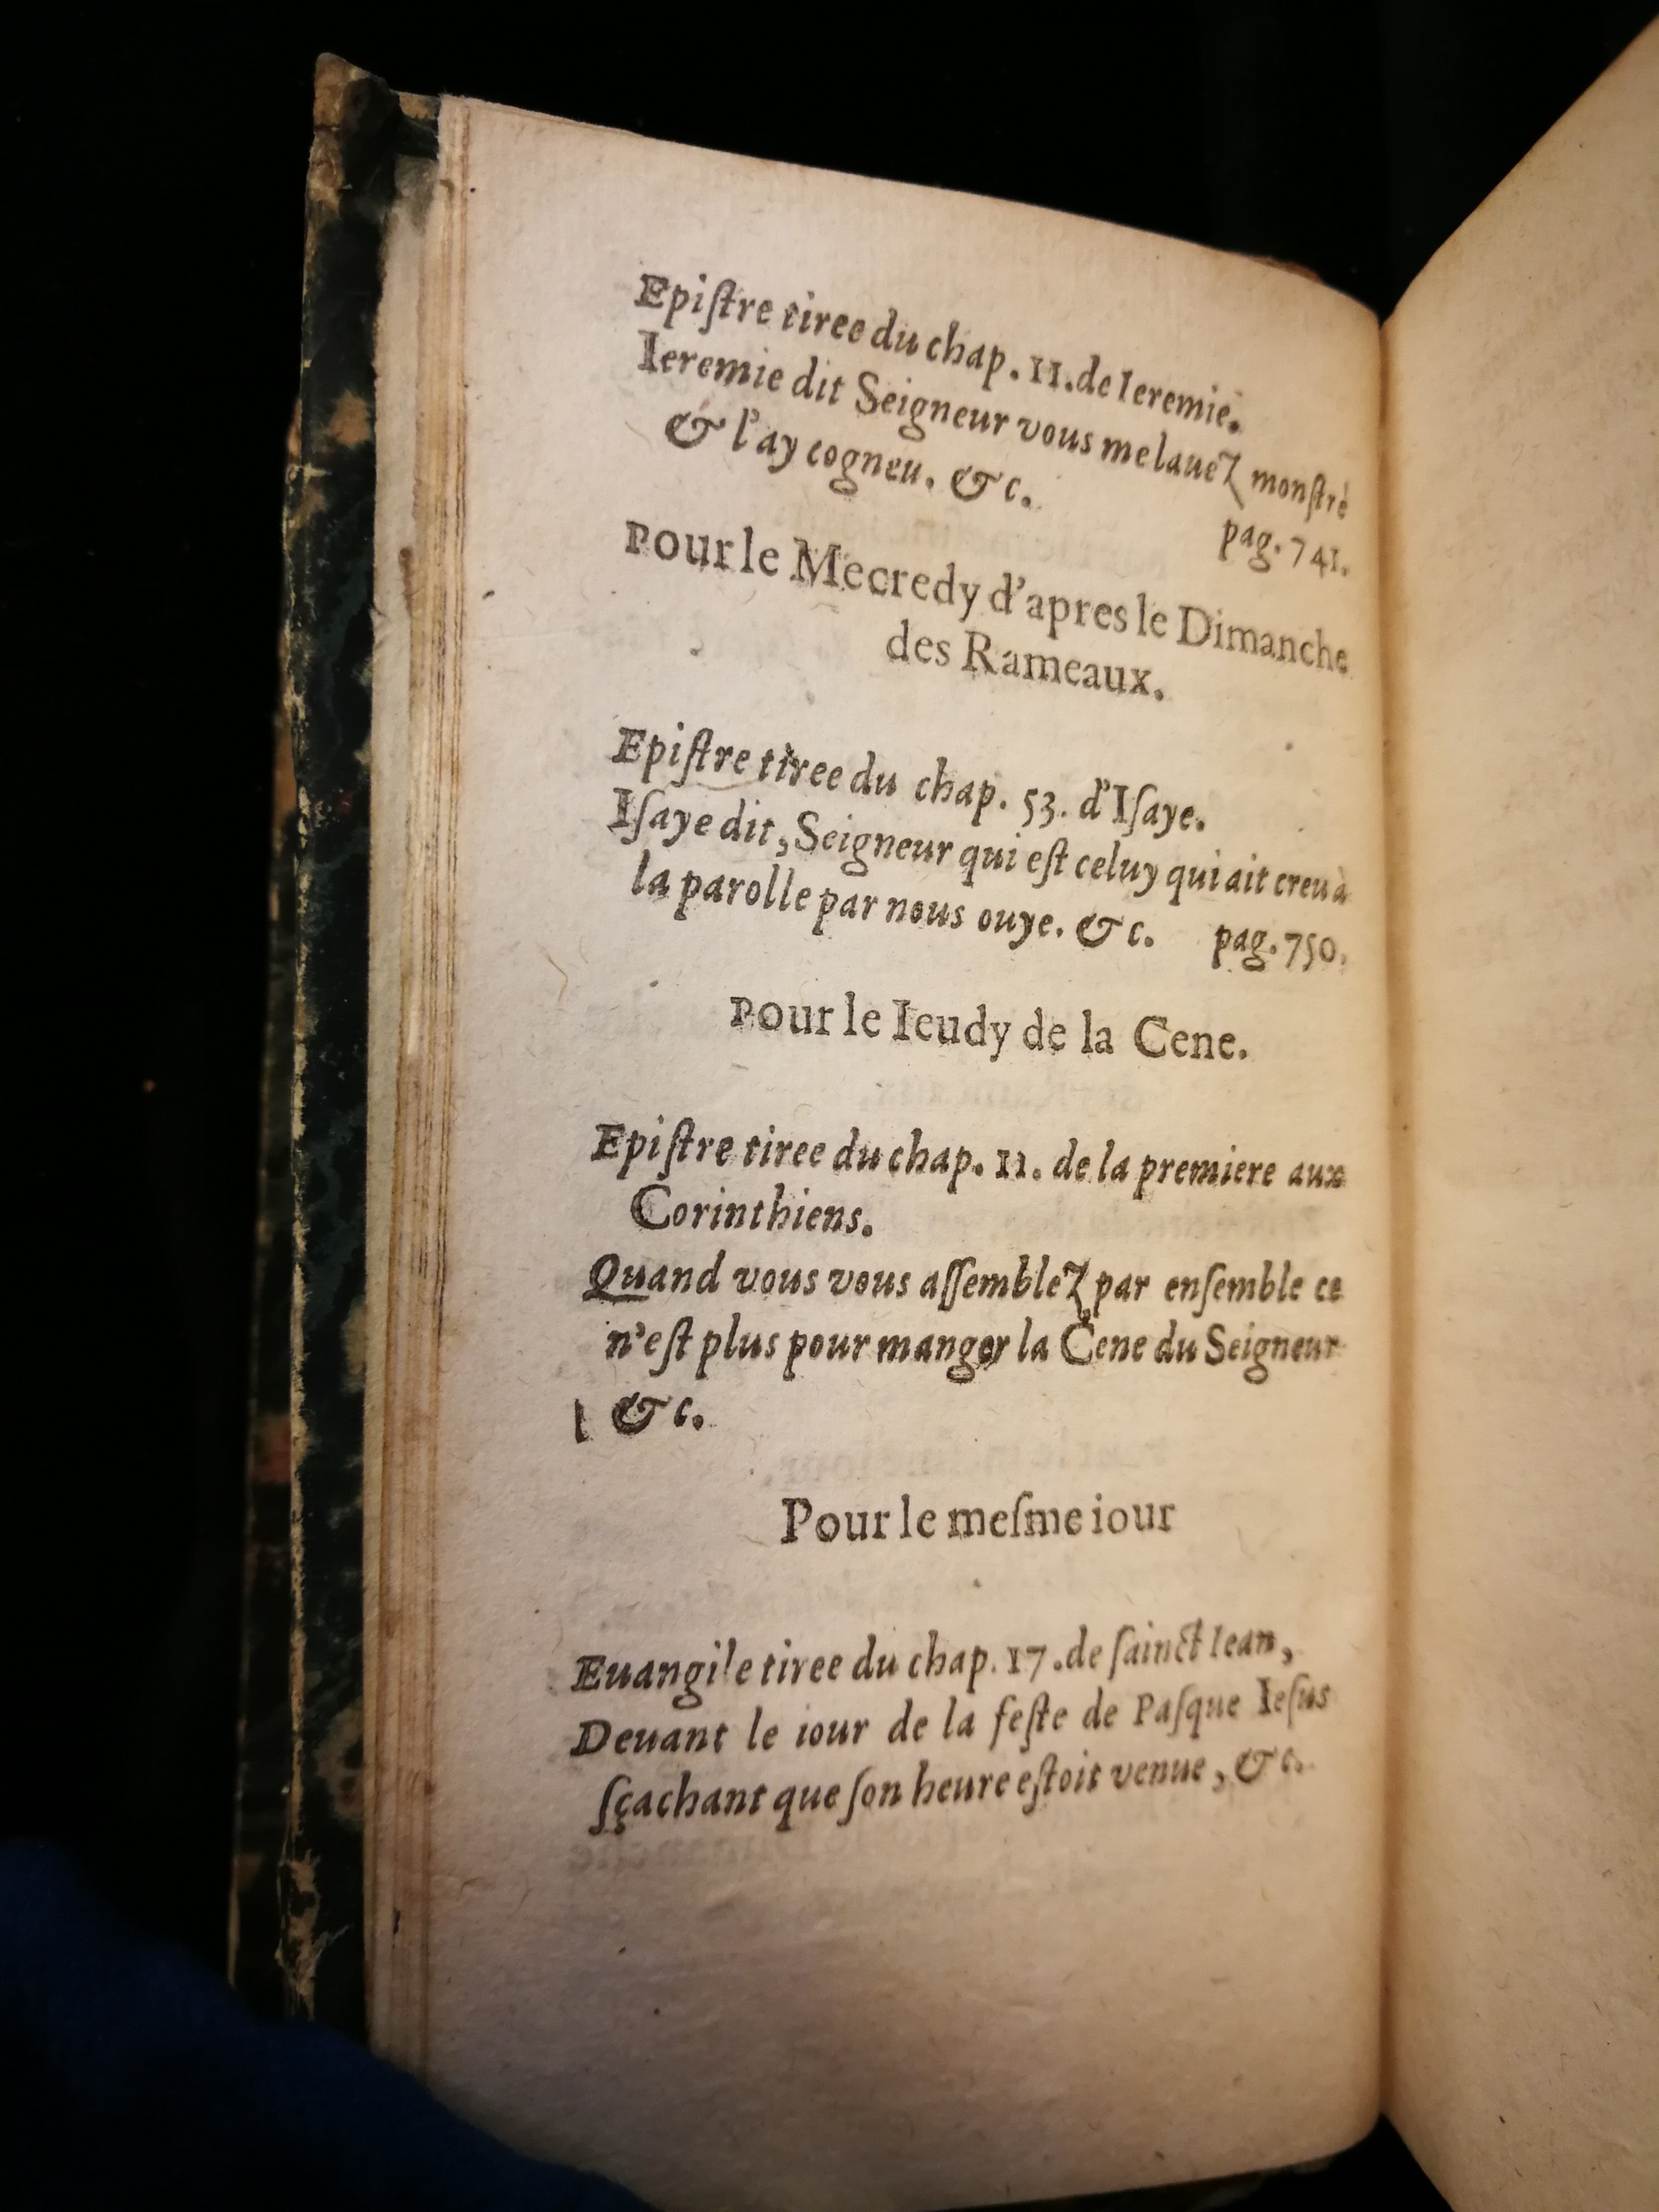 Epiſtre tiree du chap. 11. de Ieremie.
Ieremie dit Seigneur vous me lauez monſtré
& l'ay cogneu. &c.
pag. 741.
Pour le Mecredy d'apres le Dimanche
des Rameaux.
Epiſtre tiree du chap. 53. d'Iſaye.
Iſaye dit, Seigneur qui eſt celuy qui ait creu à
la parolle par nous ouye. &c. pag. 750.
Pour le Ieudy de la Cene.
Epiſtre tiree du chap. 11. de la premiere aux
Corinthiens.
Quand vous vous aſſemblez par enſemble ce
n'eſt plus pour manger la Cene du Seigneur
&c.
Pour le meſme iour
Euangile tiree du chap. 17. de ſainct Iean,
Deuant le iour de la feſte de Paſque Ieſus
ſçachant que ſon heure eſtoit venue, &c.